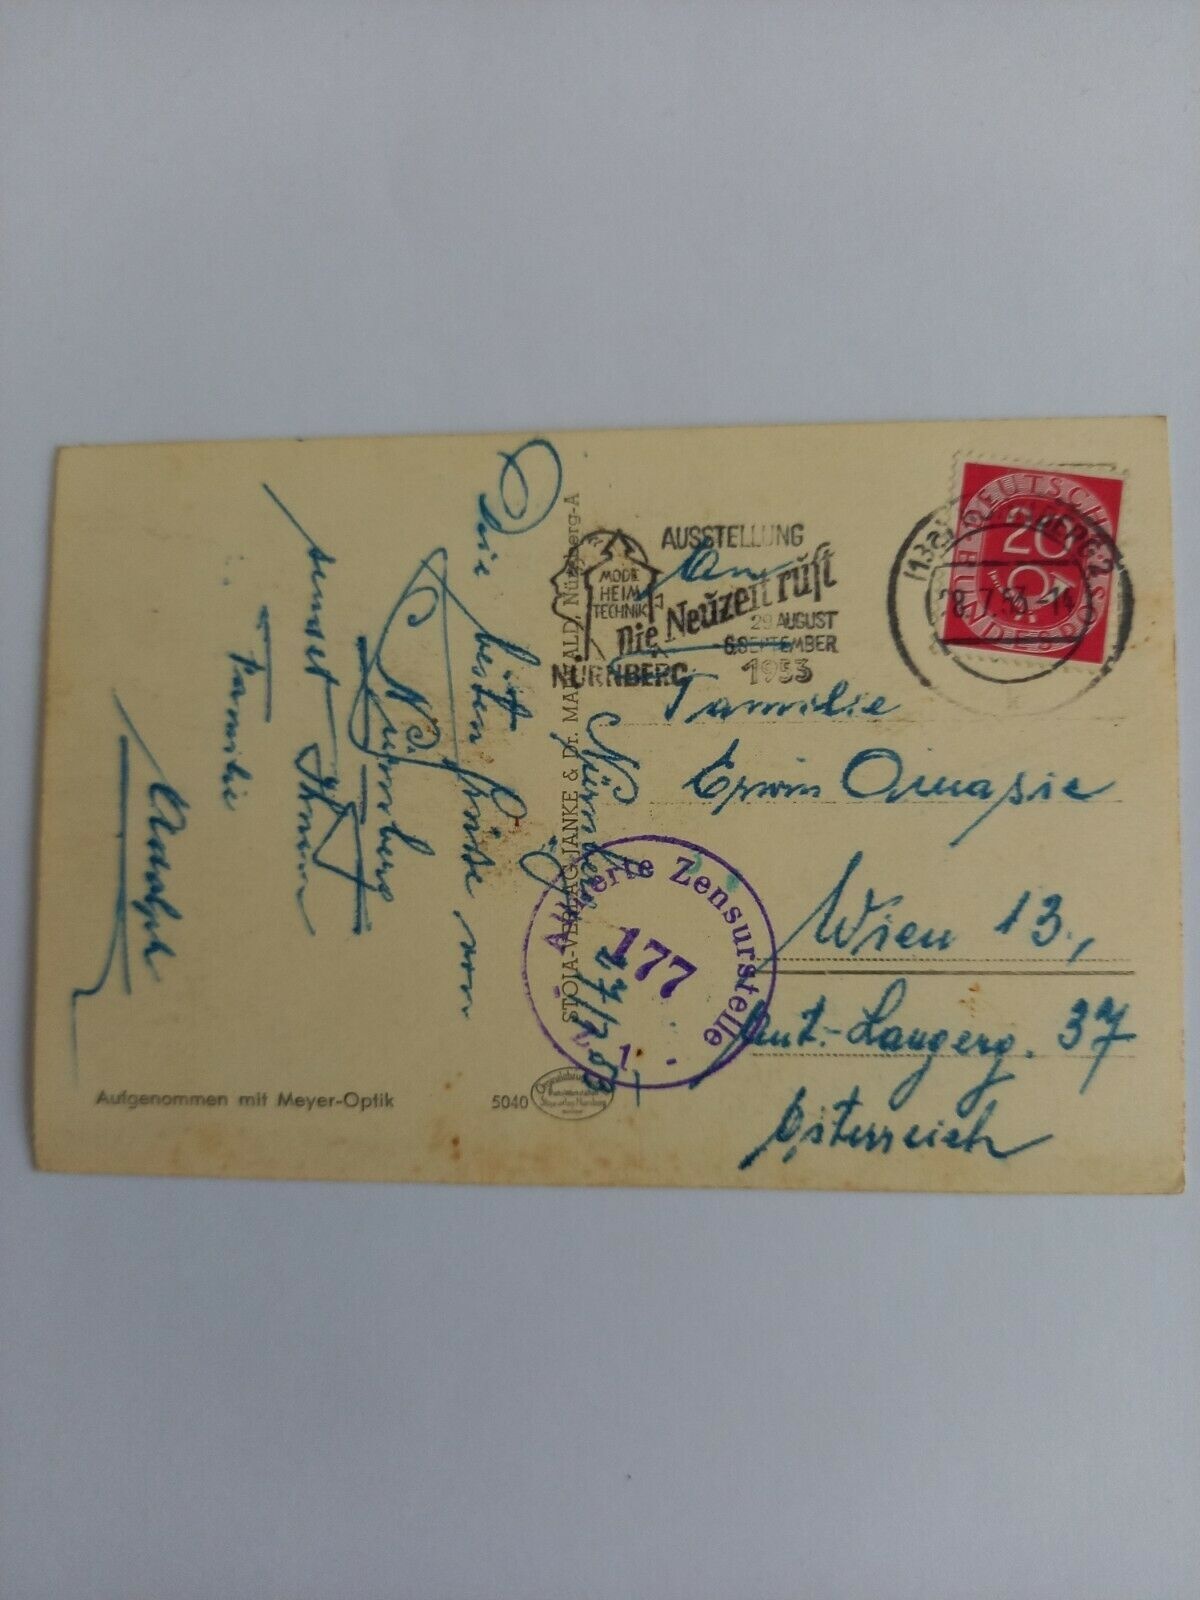 Nürnberg,
27/7 53
Die besten Grüße von
Nürnberg
sendet Ihnen
Familie
Aufgenommen mit Meyer-Optik
5040
STOJA-VERLAG JANKE & Dr. MAIWALD, Nürnberg-A
MODE
HEIM
TECHNIK
AUSSTELLUNG
Die Neuzeit ruft
29 AUGUST
6.SEPTEMBER
NÜRNBERG 1953
(13a) NÜRNBERG 2
28.7.53.-14
DEUTSCHE BUNDESPOST
20
An
Familie
Erwin
Wien 13.,
Österreich
Alliierte Zensurstelle
177